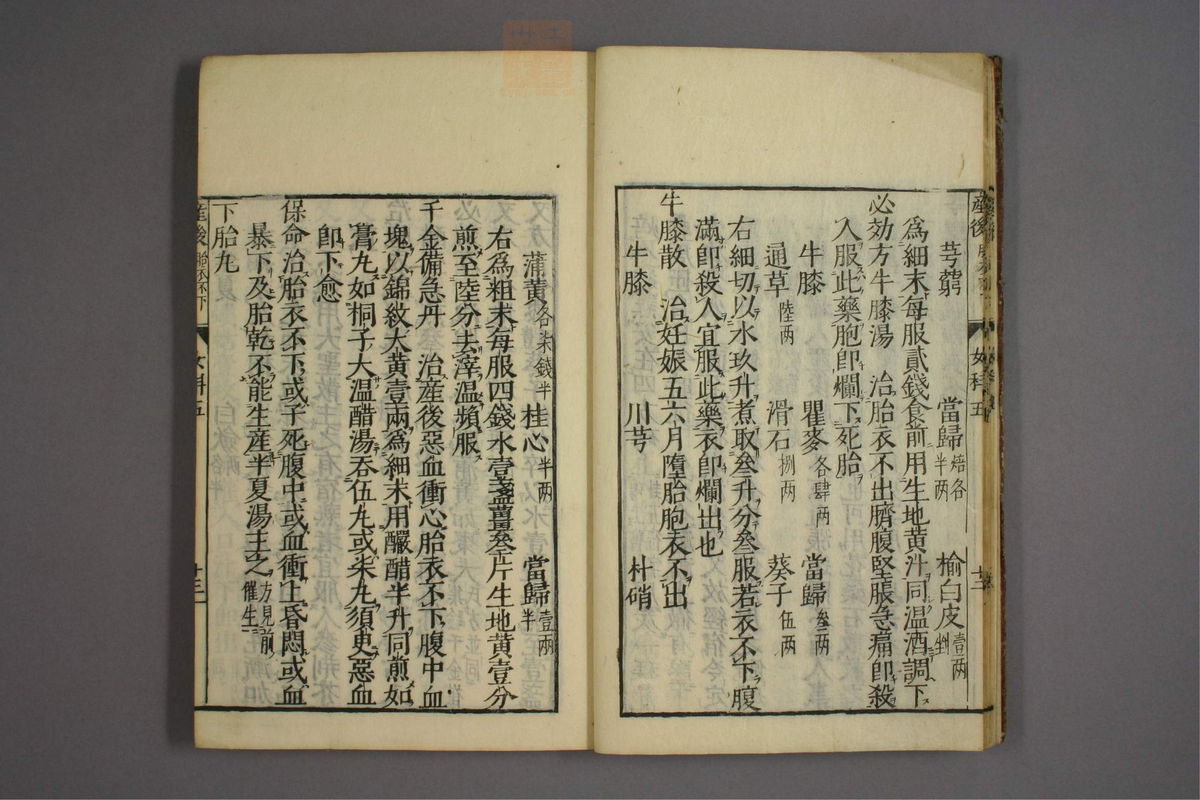 産後
女科五
芎藭 當歸焙各半两 榆白皮壹两剉
爲細末每服貳錢食前用生地黄汁同温酒調下
必効方牛膝湯 治胎衣不出臍腹堅脹急痛即殺
入服此藥胞即爛下死胎
牛膝 瞿麥各肆两 當歸叁两
通草陸两 滑石捌两 葵子伍两
右細切以水玖升煮取叁升分叁服若衣不下腹
滿即殺人宜服此藥衣即爛出也
牛膝散 治妊娠五六月墮胎胞衣不出
牛膝 川芎 朴硝
蒲黄各柒錢半 桂心半两 當歸壹两半
右爲粗末每服四錢水壹盞薑叁片生地黄壹分
煎至陸分去滓温頻服
千金備急丹 治産後惡血衝心胎衣不下腹中血
塊以錦紋大黄壹兩爲細末用釅醋半升同煎如
膏丸如桐子大温醋湯吞伍丸或柒丸須臾惡血
即下愈
保命治胎衣不下或子死腹中或血衝上昏悶或血
暴下及胎乾不能生産半夏湯主之方見前催生
下胎丸
産後胎衣不下
女科五